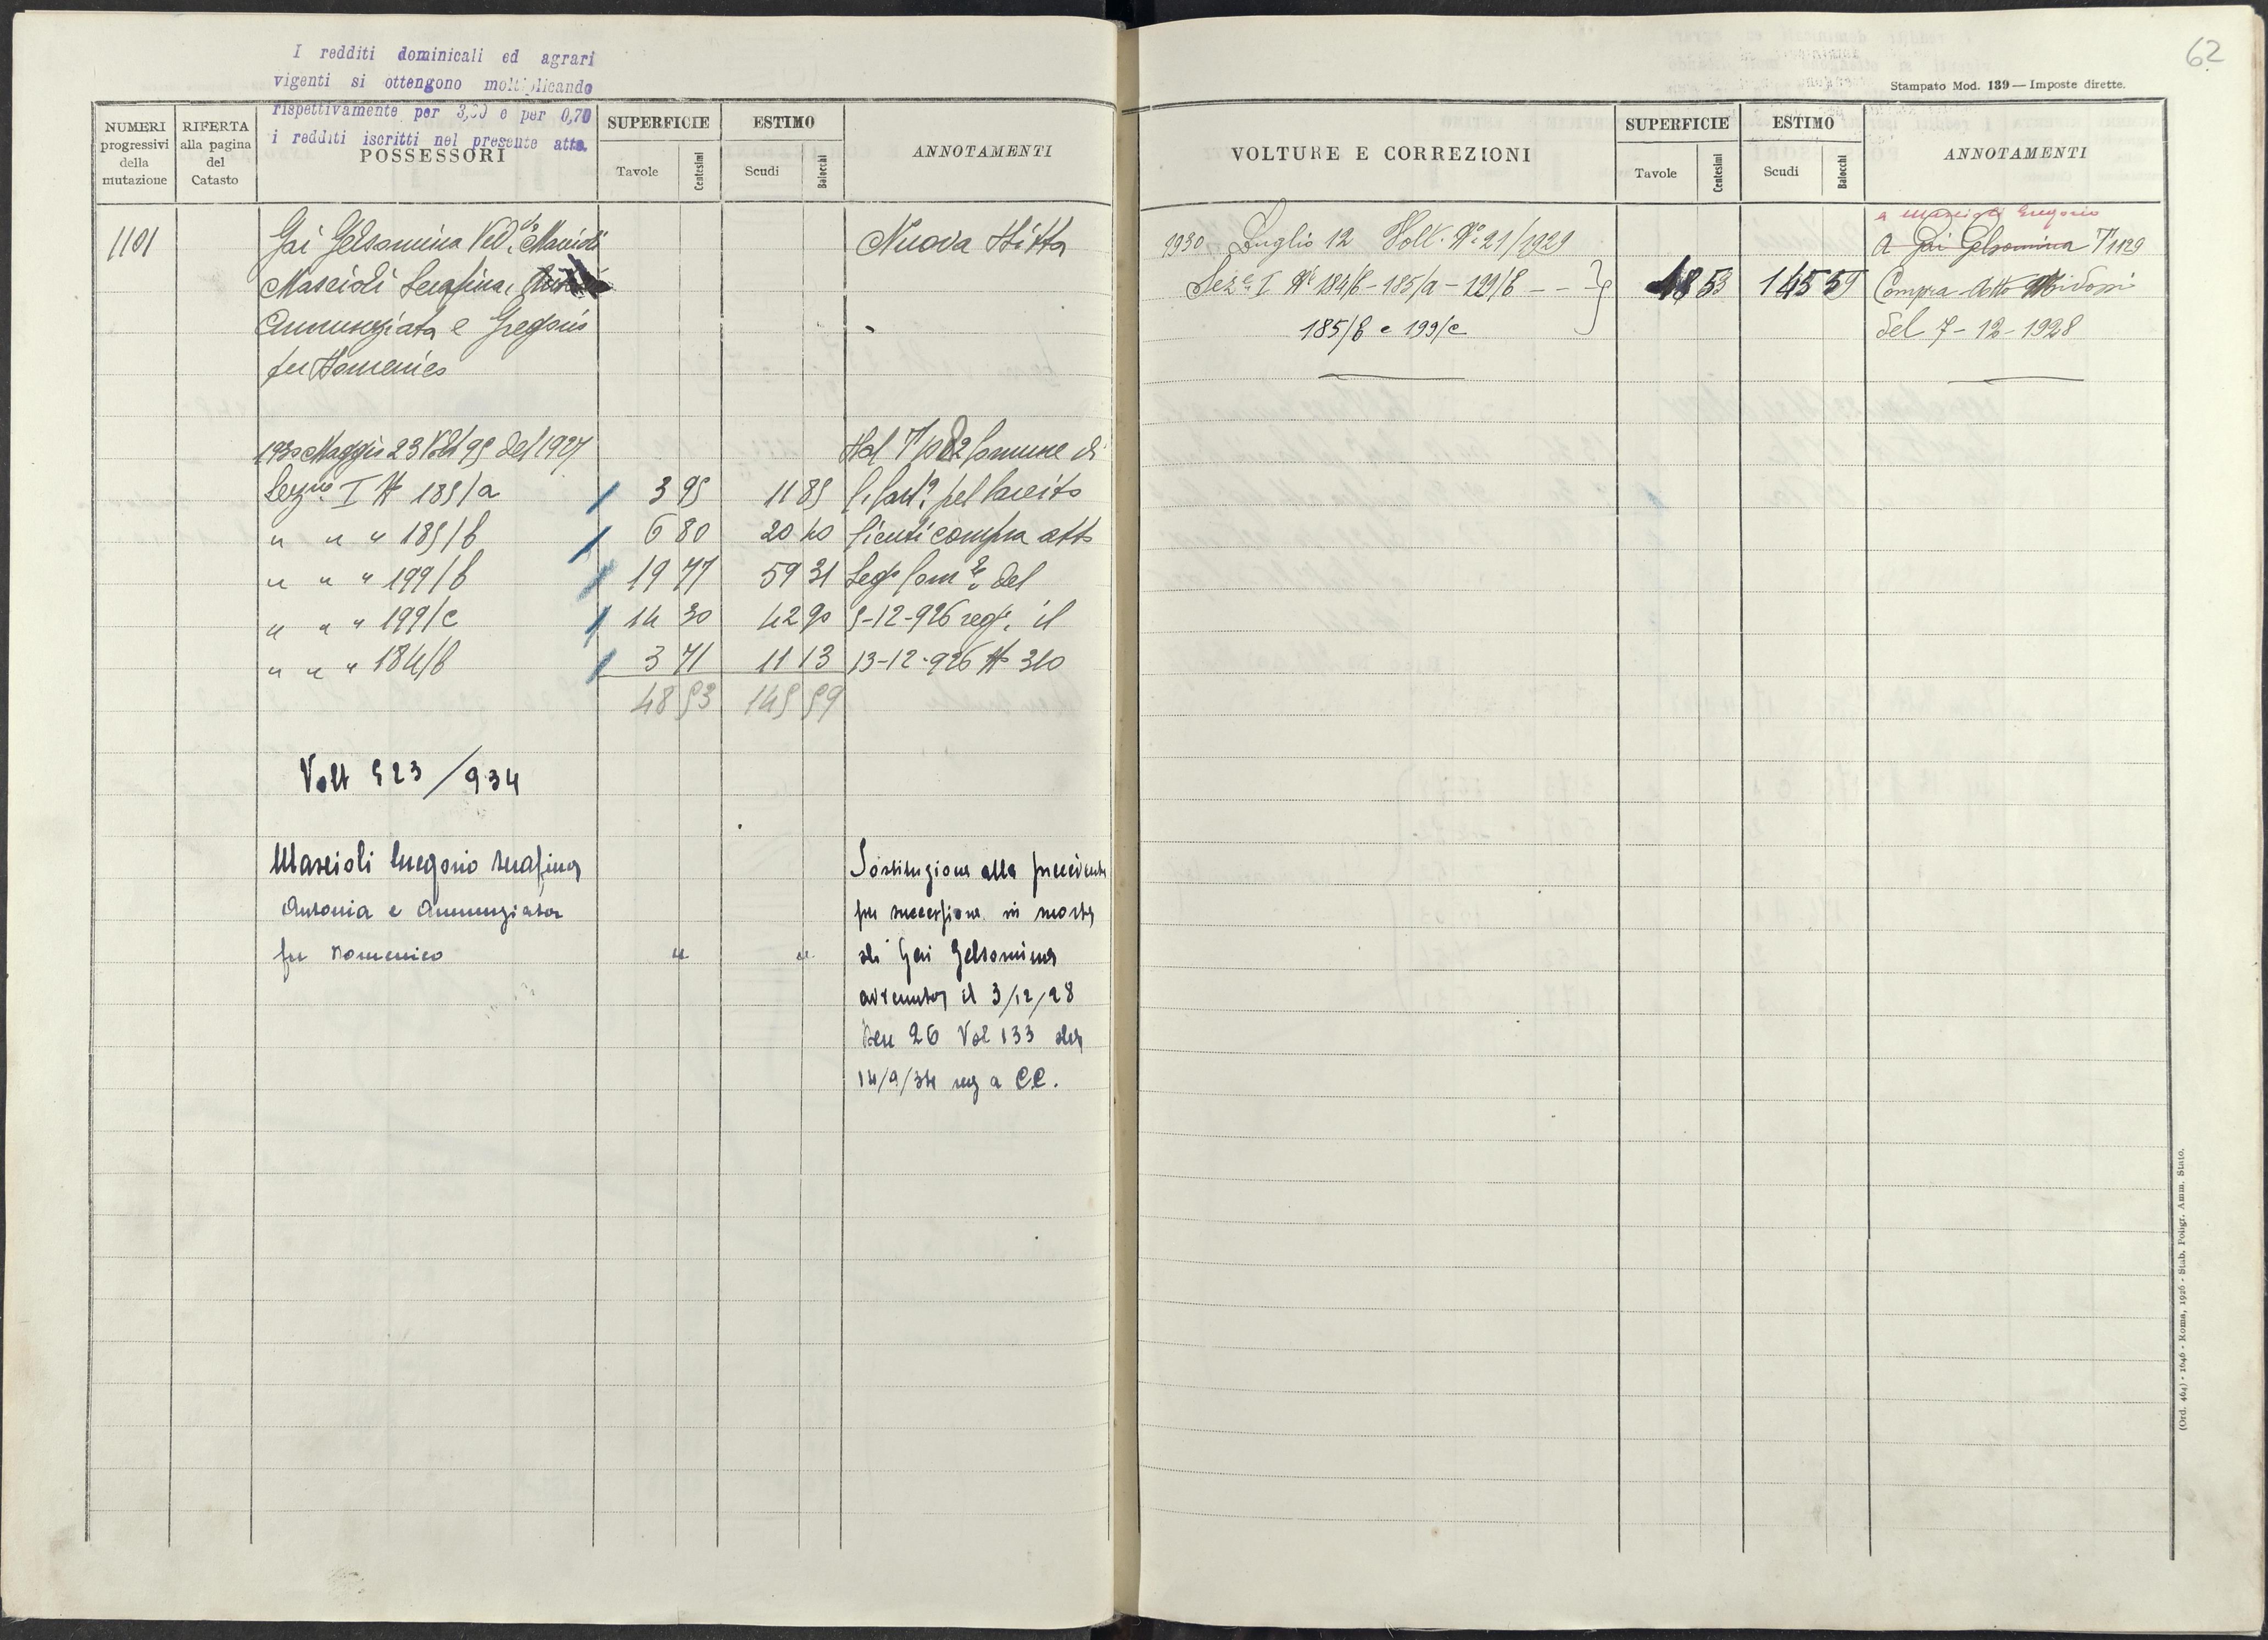 I redditi dominicali ed agrari
vigenti si ottengono moltiplicando
rispettivamente per 3,50 e per 0,70
i redditi iscritti nel presente atto.
NUMERI progressivi della mutazione
RIFERTA alla pagina del Catasto
POSSESSORI
SUPERFICIE
Tavole Centesimi
ESTIMO
Scudi Baiocchi
ANNOTAMENTI
1101 Gai Gelsomina Ved. Mascioli Nuova Ditta
Mascioli Serafina,
Annunziata e Gregorio
fu Domenico
1930 Maggio 23 Volt 95 del 1927 Dal T 1082 Comune di
Sezne I N 185/a 3 95 11 85
" " " 185/b 6 80 20 40 compra atto
" " " 199/b 19 77 59 31 Segr Com del
" " " 199/c 14 30 42 90 5-12-926 reg. il
" " " 184/b 3 71 11 13 13-12-926 N 310
48 53 145 59
Volt 523/934
Mascioli Gregorio Serafina Sostituzione alla precedente
Antonia e Annunziata per successione in morte
fu Domenico " " di Gai Gelsomina
avvenuta il 3/12/28
Den 26 Vol 133 del
14/9/34 reg a CC.
62
Stampato Mod. 139 — Imposte dirette.
VOLTURE E CORREZIONI
SUPERFICIE
Tavole Centesimi
ESTIMO
Scudi Baiocchi
ANNOTAMENTI
a Mascioli Gregorio
1930 Luglio 12 Volt. N. 21/1929 A Gai Gelsomina T 1129
Seze I Ni 184/b - 185/a - 199/b - - - 48 53 145 59 Compra Atto
185/b e 199/c del 7-12-1928
(Ord. 464) - 1646 - Roma, 1926 - Stab. Poligr. Amm. Stato.